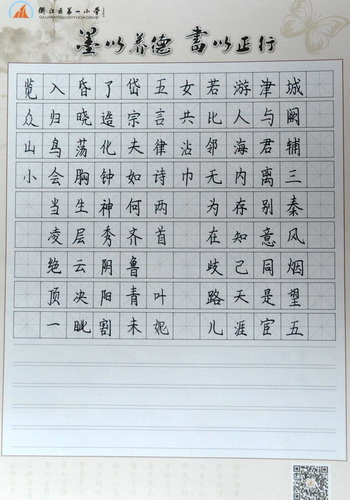 衢江区第一小学
墨以养德 书以正行
城阙辅三秦风烟望五
津与君离别意同是宦
游人海内存知己天涯
若比邻无为在歧路儿
女共沾巾
五言律诗两首 叶妮
岱宗夫如何齐鲁青未
了造化钟神秀阴阳割
昏晓荡胸生层云决眦
入归鸟会当凌绝顶一
览众山小